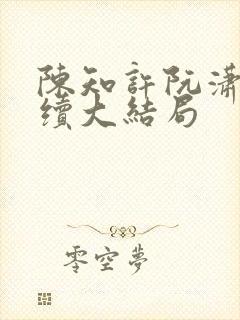 陳知許阮瀟
續大結局
零空夢